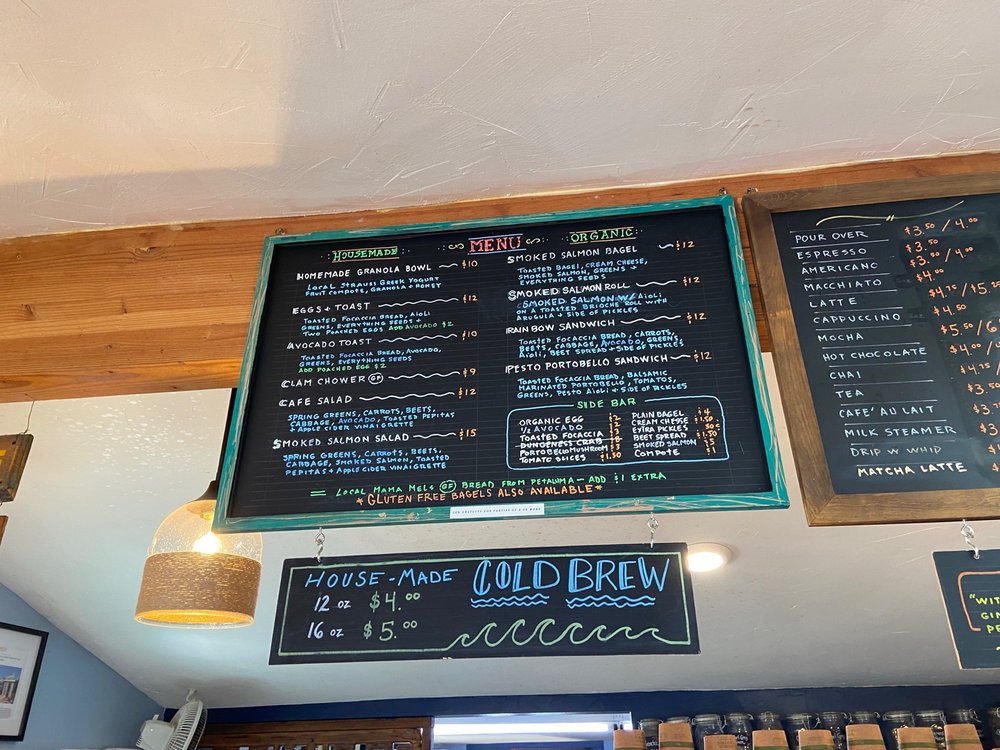 HOUSEMADE
MENU
ORGANIC
HOMEMADE GRANOLA BOWL $10
LOCAL STRAUSS GREEK YOGURT
FRUIT COMPOTE, GRANOLA + HONEY
EGGS + TOAST $12
TOASTED FOCACCIA BREAD, AIOLI
GREENS, EVERYTHING SEEDS +
TWO POACHED EGGS ADD AVOCADO $2
AVOCADO TOAST $10
TOASTED FOCACCIA BREAD, AVOCADO,
GREENS, EVERYTHING SEEDS
ADD POACHED EGG $2
CLAM CHOWER GF $9
CAFE SALAD $12
SPRING GREENS, CARROTS, BEETS,
CABBAGE, AVOCADO, TOASTED PEPITAS
+ APPLE CIDER VINAIGRETTE
SMOKED SALMON SALAD $15
SPRING GREENS, CARROTS, BEETS,
CABBAGE, SMOKED SALMON, TOASTED
PEPITAS + APPLE CIDER VINAIGRETTE
SMOKED SALMON BAGEL $12
TOASTED BAGEL, CREAM CHEESE,
SMOKED SALMON, GREENS +
EVERYTHING SEEDS
SMOKED SALMON ROLL $12
SMOKED SALMON W/ AIOLI
ON A TOASTED BRIOCHE ROLL WITH
ARUGUIA + SIDE OF PICKLES
RAIN BOW SANDWICH $12
TOASTED FOCACCIA BREAD, CARROTS,
BEETS, CABBAGE, AVOCADO, GREENS
AIOLI, BEET SPREAD + SIDE OF PICKLES
PESTO PORTOBELLO SANDWICH $12
TOASTED FOCACCIA BREAD, BALSAMIC
MARINATED PORTOBELLO, TOMATOS,
GREENS, PESTO AIOLI + SIDE OF PICKLES
SIDE BAR
ORGANIC EGG $2
1/2 AVOCADO
TOASTED FOCACCIA
DUNGENESS CRAB
PORTOBELLO MUSHROOM $3
TOMATO SLICES $1.50
PLAIN BAGEL $4
CREAM CHEESE $1.50
EXTRA PICKLES 50¢
BEET SPREAD $1.50
SMOKED SALMON $5
COMPOTE $1
= LOCAL MAMA MELS GF BREAD FROM PETALUMA - ADD $1 EXTRA
* GLUTEN FREE BAGELS ALSO AVAILABLE *
HOUSE-MADE COLD BREW
12 OZ $4.00
16 OZ $5.00
POUR OVER $3.50 / 4.00
ESPRESSO $3.50
AMERICANO $3.50 / 4.00
MACCHIATO $4.00
LATTE $4.75 / $5.25
CAPPUCCINO $4.50
MOCHA $5.50 / 6
HOT CHOCOLATE $4.00 / 4
CHAI $4.75
TEA $3.50
CAFE' AU LAIT $4
MILK STEAMER $3.5
DRIP W WHIP $3.5
MATCHA LATTE $4
"WIT
GIN
PE